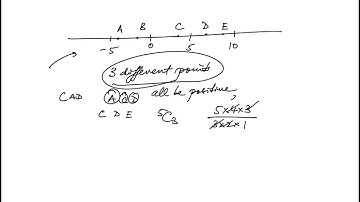 A B C D E
-5 0 5 10
3 different points
CAD all be positive,
C D E ⁵C₃ 5×4×3
3×2×1